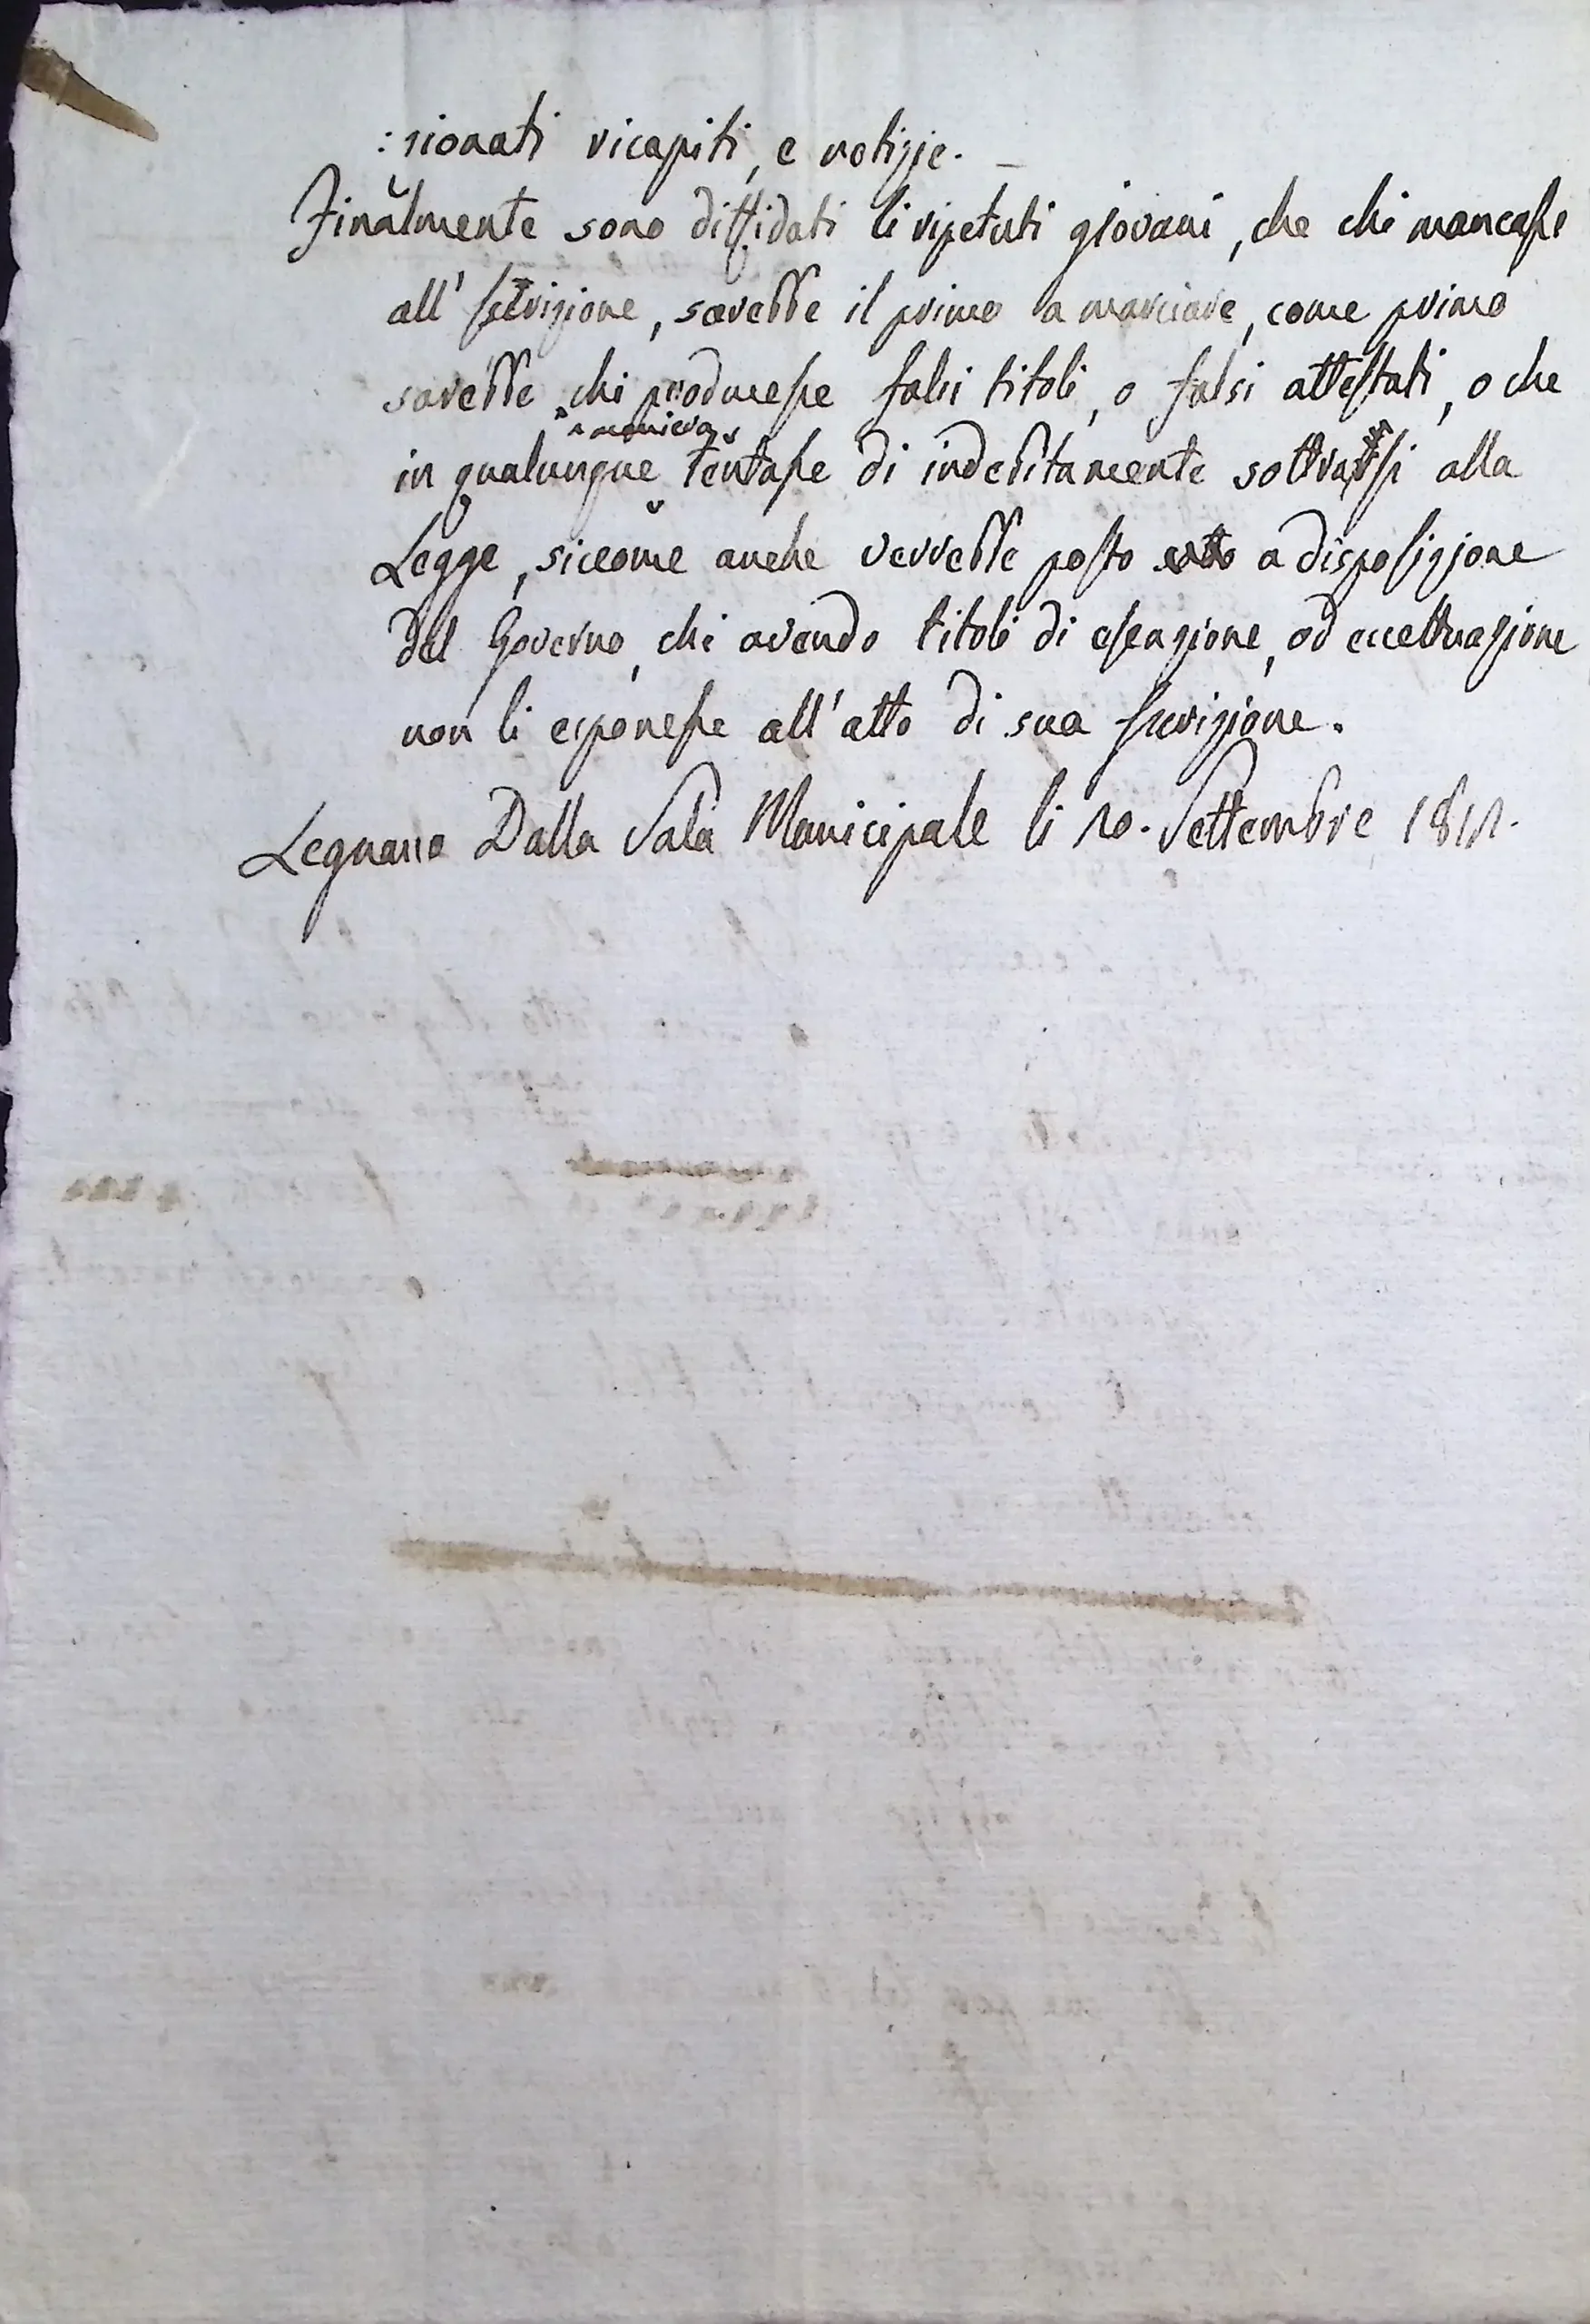 :zionati ricapiti, e notizie. –
Finalmente sono diffidati li ripetuti giovani, che chi mancasse
all' Iscrizione, sarebbe il primo a marciare, come primo
sarebbe chi producesse falsi titoli, o falsi attestati, o che
maniera
in qualunque tentasse di indebitamente sottrarsi alla
Legge, siccome anche verrebbe posto a disposizione
del Governo, chi avendo titoli di esenzione, od eccettuazione
non li esponesse all' atto di sua Iscrizione.
Legnano Dalla Sala Municipale li 10. Settembre